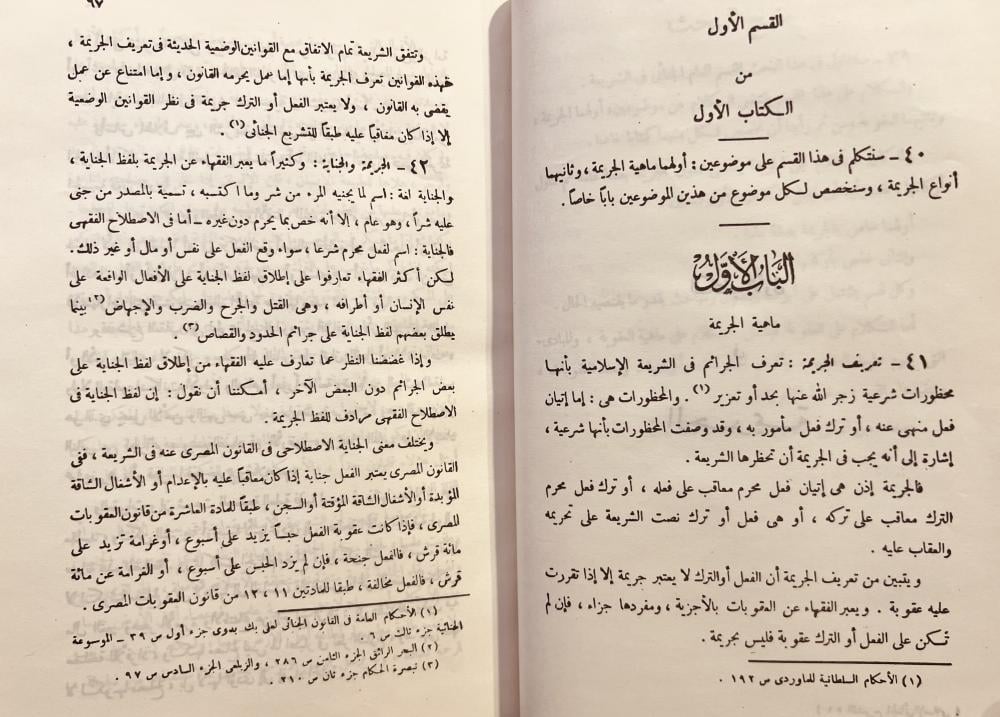 القسم الأول
من
الكتاب الأول
٤٠ - سنتكلم فى هذا القسم على موضوعين : أولهما ماهية الجريمة ، وثانيهما
أنواع الجريمة ، وسنخصص لكل موضوع من هذين الموضوعين باباً خاصاً .
الباب الأول
ماهية الجريمة
٤١ - تعريف الجريمة : تعرف الجرائم فى الشريعة الإسلامية بأنها
محظورات شرعية زجر الله عنها بحد أو تعزير (١) . والمحظورات هى : إما إتيان
فعل منهى عنه ، أو ترك فعل مأمور به ، وقد وصفت المحظورات بأنها شرعية ،
إشارة إلى أنه يجب فى الجريمة أن تحظرها الشريعة .
فالجريمة إذن هى إتيان فعل محرم معاقب على فعله ، أو ترك فعل محرم
الترك معاقب على تركه ، أو هى فعل أو ترك نصت الشريعة على تحريمه
والعقاب عليه .
ويتبين من تعريف الجريمة أن الفعل أو الترك لا يعتبر جريمة إلا إذا تقررت
عليه عقوبة . ويعبر الفقهاء عن العقوبات بالأجزية ، ومفردها جزاء ، فإن لم
تكن على الفعل أو الترك عقوبة فليس بجريمة .
(١) الأحكام السلطانية للماوردى ص ١٩٢ .
٦٧
وتتفق الشريعة تمام الاتفاق مع القوانين الوضعية الحديثة فى تعريف الجريمة ،
فهذه القوانين تعرف الجريمة بأنها إما عمل يحرمه القانون ، وإما امتناع عن عمل
يقضى به القانون ، ولا يعتبر الفعل أو الترك جريمة فى نظر القوانين الوضعية
إلا إذا كان معاقباً عليه طبقاً للتشريع الجنائى (١) .
٤٢ - الجريمة والجناية : وكثيراً ما يعبر الفقهاء عن الجريمة بلفظ الجناية ،
والجناية لغة : اسم لما يجنيه المرء من شر وما اكتسبه ، تسمية بالمصدر من جنى
عليه شراً ، وهو عام ، إلا أنه خص بما يحرم دون غيره - أما فى الاصطلاح الفقهى
فالجناية : اسم لفعل محرم شرعا ، سواء وقع الفعل على نفس أو مال أو غير ذلك .
لكن أكثر الفقهاء تعارفوا على إطلاق لفظ الجناية على الأفعال الواقعة على
نفس الإنسان أو أطرافه ، وهى القتل والجرح والضرب والإجهاض (٢) بينما
يطلق بعضهم لفظ الجناية على جرائم الحدود والقصاص (٣) .
وإذا غضضنا النظر عما تعارف عليه الفقهاء من إطلاق لفظ الجناية على
بعض الجرائم دون البعض الآخر ، أمكننا أن نقول : إن لفظ الجناية فى
الاصطلاح الفقهى مرادف للفظ الجريمة .
ويختلف معنى الجناية الاصطلاحى فى القانون المصرى عنه فى الشريعة ، ففى
القانون المصرى يعتبر الفعل جناية إذا كان معاقباً عليه بالإعدام أو الأشغال الشاقة
المؤبدة أو الأشغال الشاقة المؤقتة أو السجن ، طبقاً للمادة العاشرة من قانون العقوبات
المصرى ، فإذا كانت عقوبة الفعل حبساً يزيد على أسبوع ، أو غرامة تزيد على
مائة قرش ، فالفعل جنحة ، فإن لم يزد الحبس على أسبوع ، أو الغرامة عن مائة
قرش ، فالفعل مخالفة ، طبقا للمادتين ١١ ، ١٢ من قانون العقوبات المصرى .
(١) الأحكام العامة فى القانون الجنائى لعلى بك بدوى جزء أول ص ٣٩ - الموسوعة
الجنائية جزء ثالث ص ٦ .
(٢) البحر الرائق الجزء الثامن ص ٢٨٦ ، والزيلعى الجزء السادس ص ٩٧ .
(٣) تبصرة الحكام جزء ثان ص ٢١٠ .